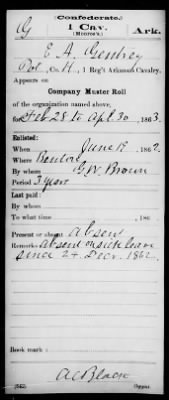 Confederate.
G 1 Cav. Ark.
(Monroe's.)
E. A. Gentry
Co. H, 1 Reg't Arkansas Cavalry.
Appears on
Company Muster Roll
of the organization named above,
for Feb 28 to Apl. 30, 1863.
Enlisted:
When June 18, 1862.
Where Benton
By whom G. W. Brown
Period 3 years
Last paid:
By whom
To what time , 186 .
Present or absent absent
Remarks: absent on sick leave
since 24 Decr. 1862.
Book mark:
A C Black
(642) Copyist.